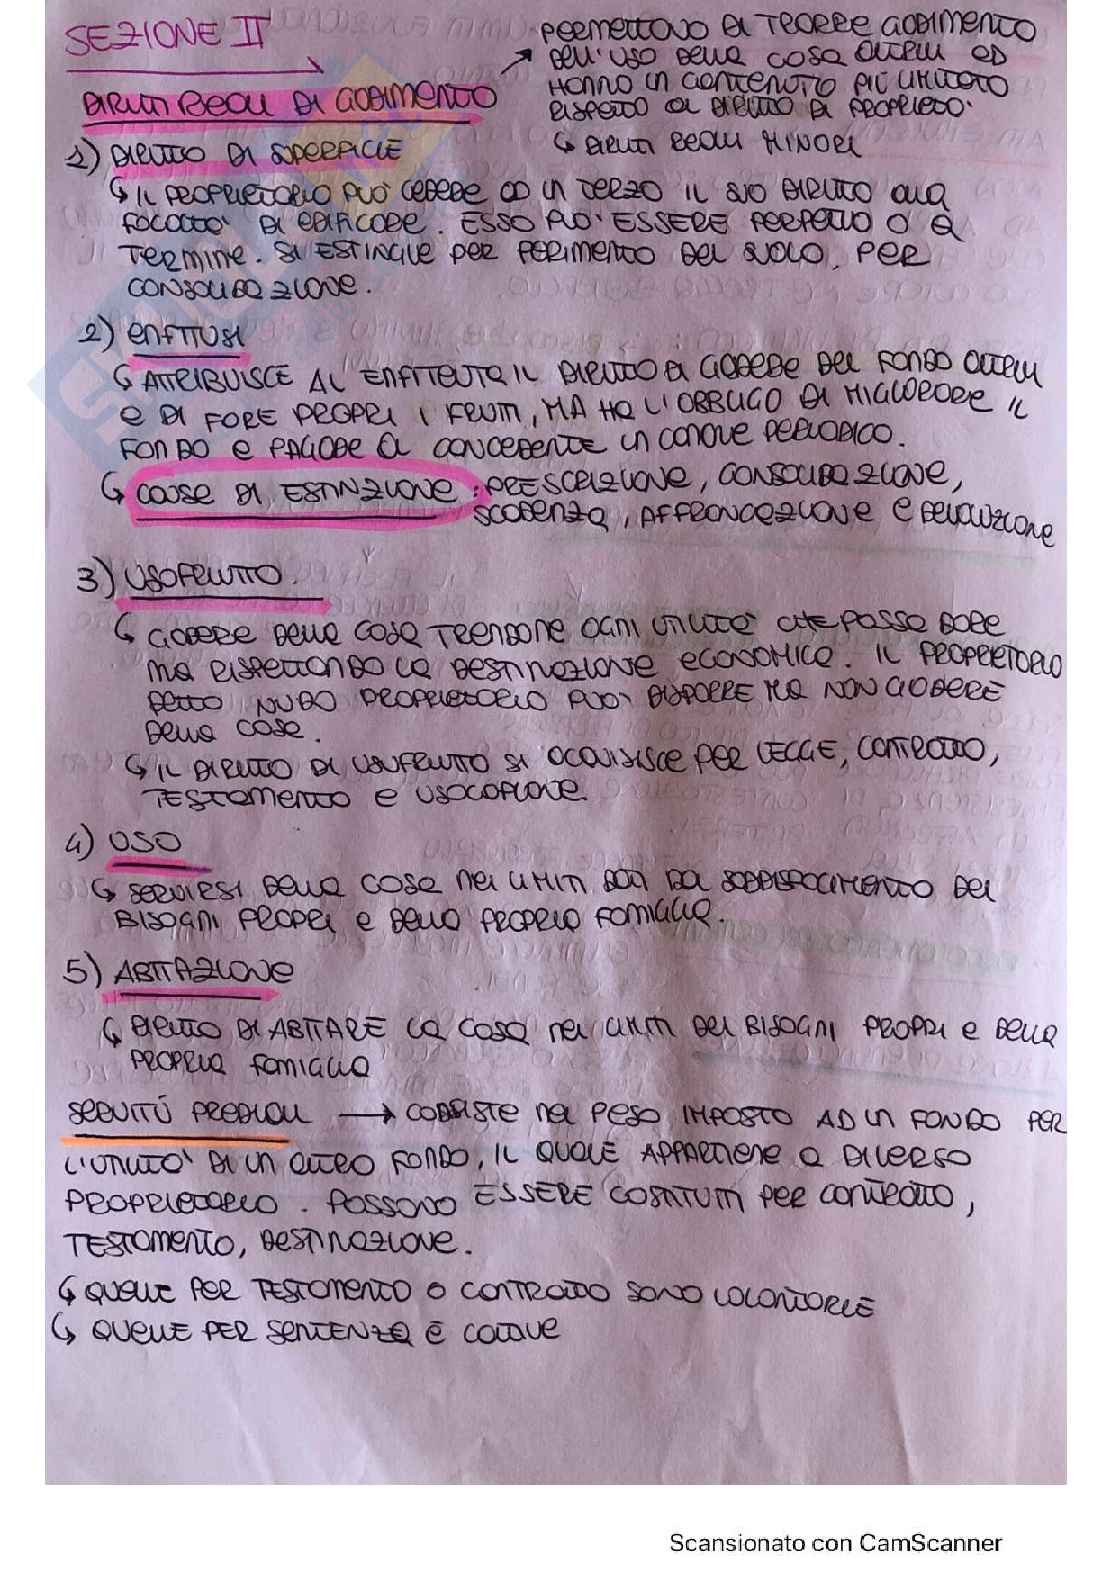 SEZIONE II
DIRITTI REALI DI GODIMENTO
PERMETTONO DI TRARRE GODIMENTO
DELL'USO DELLA COSA ALTRUI ED
HANNO UN CONTENUTO PIÙ LIMITATO
RISPETTO AL DIRITTO DI PROPRIETÀ.
↳ DIRITTI REALI MINORI
1) DIRITTO DI SUPERFICIE
↳ IL PROPRIETARIO PUÒ CEDERE AD UN TERZO IL SUO DIRITTO ALLA
FACOLTÀ DI EDIFICARE. ESSO PUÒ ESSERE PERPETUO O A
TERMINE. SI ESTINGUE PER PERIMENTO DEL SUOLO, PER
CONSOLIDAZIONE.
2) ENFITEUSI
↳ ATTRIBUISCE AL ENFITEUTA IL DIRITTO DI GODERE DEL FONDO ALTRUI
E DI FARE PROPRI I FRUTTI, MA HA L'OBBLIGO DI MIGLIORARE IL
FONDO E PAGARE AL CONCEDENTE UN CANONE PERIODICO.
↳ CAUSE DI ESTINZIONE: PRESCRIZIONE, CONSOLIDAZIONE,
SCADENZA, AFFRANCAZIONE E DEVOLUZIONE
3) USOFRUTTO.
↳ GODERE DELLA COSA TRAENDONE OGNI UTILITÀ CHE POSSA DARE
MA RISPETTANDO LA DESTINAZIONE ECONOMICA. IL PROPRIETARIO
DETTO NUDO PROPRIETARIO PUÒ DISPORRE MA NON GODERE
DELLA COSA.
↳ IL DIRITTO DI USUFRUTTO SI ACQUISISCE PER LEGGE, CONTRATTO,
TESTAMENTO E USUCAPIONE.
4) USO
↳ SERVIRSI DELLA COSA NEI LIMITI DATI DAL SODDISFACIMENTO DEI
BISOGNI PROPRI E DELLA PROPRIA FAMIGLIA.
5) ABITAZIONE
↳ DIRITTO DI ABITARE LA CASA NEI LIMITI DEI BISOGNI PROPRI E DELLA
PROPRIA FAMIGLIA
SERVITÙ PREDIALI → CONSISTE NEL PESO IMPOSTO AD UN FONDO PER
L'UTILITÀ DI UN ALTRO FONDO, IL QUALE APPARTIENE A DIVERSO
PROPRIETARIO. POSSONO ESSERE COSTITUITI PER CONTRATTO,
TESTAMENTO, DESTINAZIONE.
↳ QUELLE PER TESTAMENTO O CONTRATTO SONO VOLONTARIE
↳ QUELLE PER SENTENZA È COATTIVE
Scansionato con CamScanner